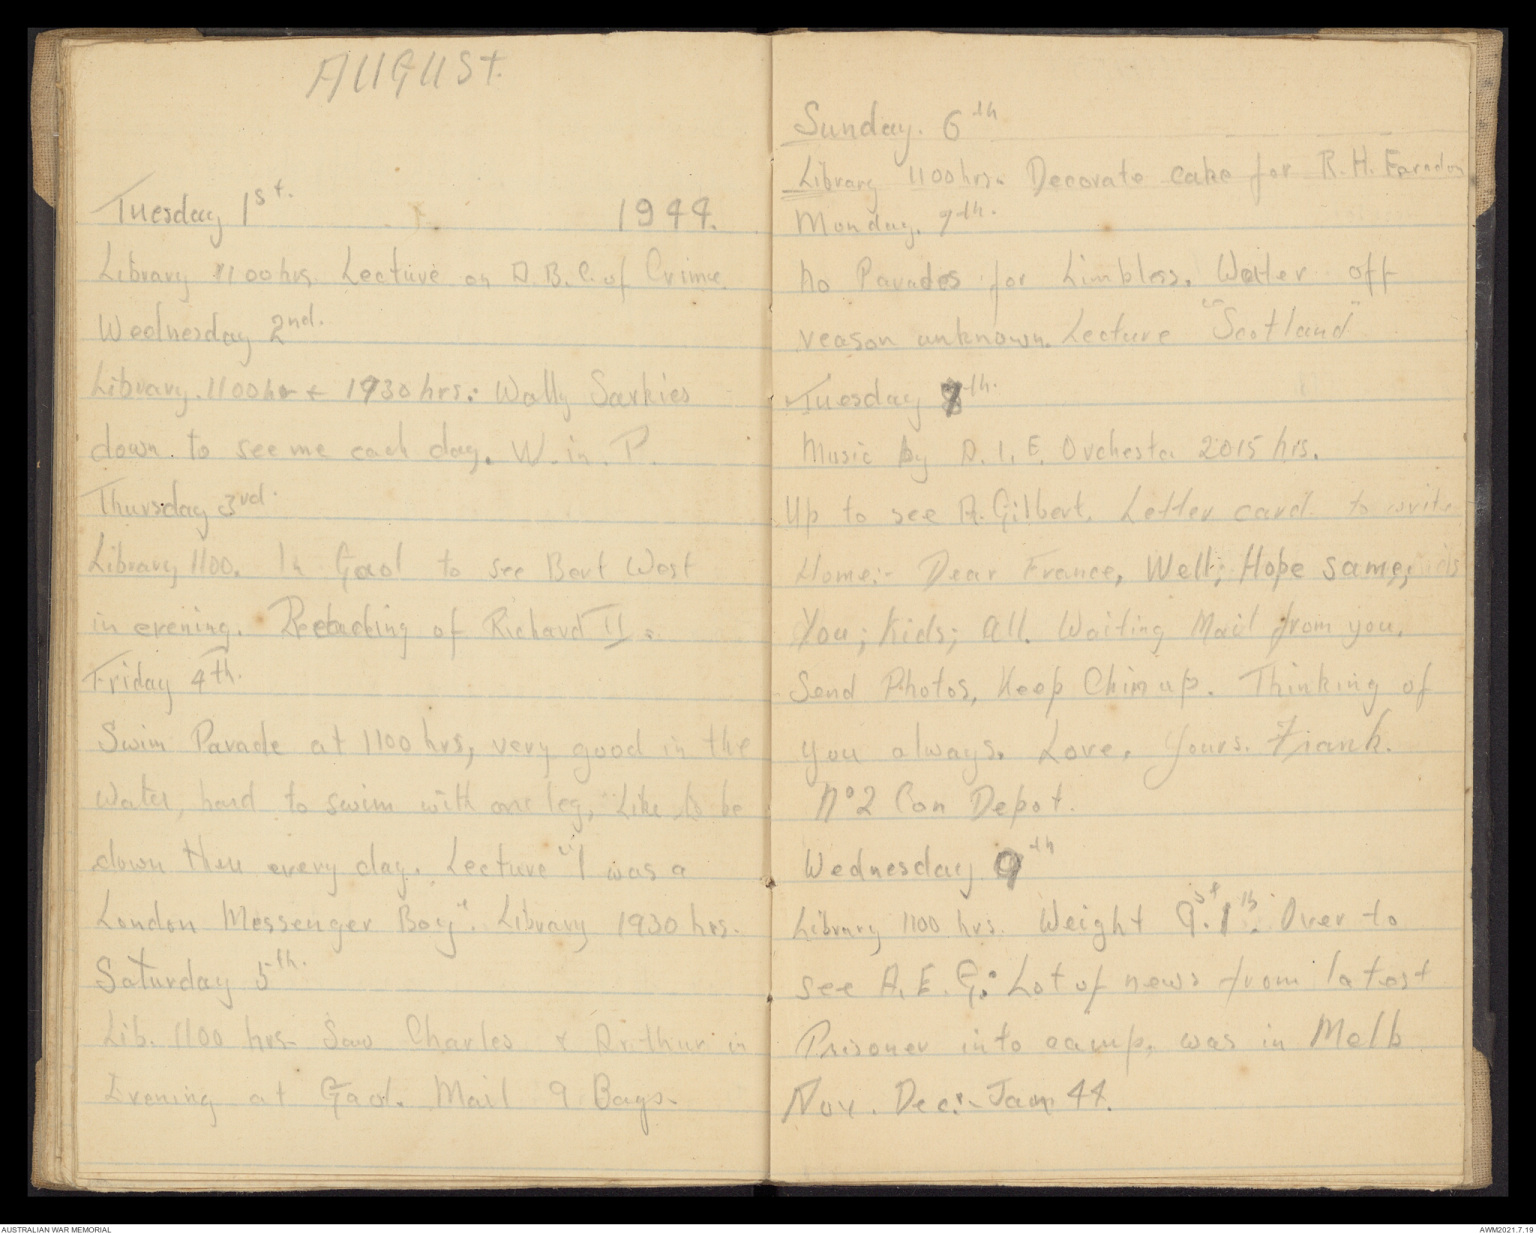 AUGUST.
Tuesday 1st. 1944.
Library 1100hrs. Lecture on A.B.C. of Crime.
Wednesday 2nd.
Library. 1100hr + 1930 hrs: Wally Sarkies
down. to see me each day. W. in. P.
Thursday 3rd.
Library 1100. In Gaol to see Bert West
in evening. Reading of Richard II.
Friday 4th.
Swim Parade at 1100 hrs, very good in the
water, hard to swim with one leg, like to be
down there every day. Lecture "I was a
London Messenger Boy". Library 1930 hrs.
Saturday 5th.
Lib. 1100 hrs. Saw Charles & Arthur in
Evening at Gaol. Mail 9 Bags.
Sunday. 6th
Library 1100hrs. Decorate cake for R.H. Farndon
Monday. 7th.
No Parades for Limbless. Water off
reason unknown. Lecture "Scotland"
Tuesday 8th.
Music by A.I.F. Orchesta 2015 hrs.
Up to see A. Gilbert. Letter card to write
Home:- Dear France, Well; Hope same;
You; Kids; all. Waiting Mail from you.
Send Photos, Keep Chin up. Thinking of
you always. Love. Yours. Frank.
No 2 Con Depot.
Wednesday 9th
Library 1100 hrs. Weight 9st. 1lb. Over to
see A. E. G: Lot of news from latest
Prisoner into camp, was in Melb
Nov. Dec:- Jan 44.
AUSTRALIAN WAR MEMORIAL
AWM2021.7.19